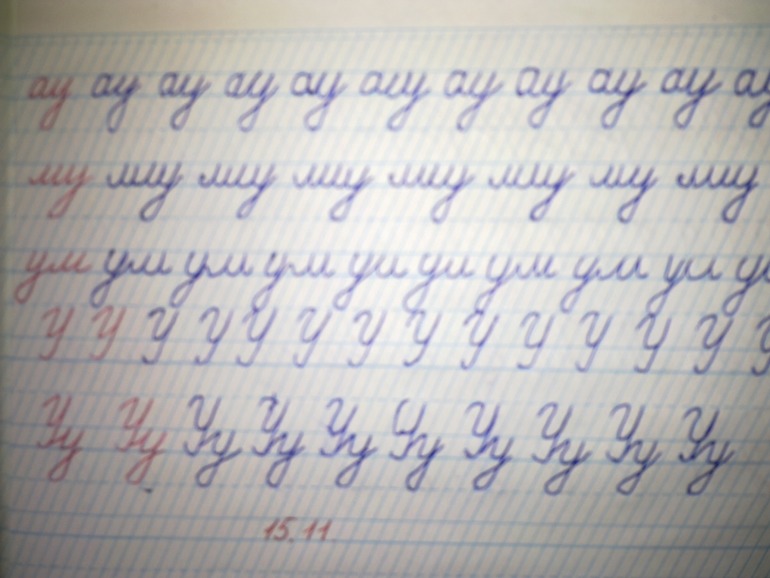 ау ау ау ау ау ау ау ау ау ау ау
му му му му му му му му
ум ум ум ум ум ум ум ум ум у
У У У У У У У У У У У У У У
Уу Уу Уу Уу Уу Уу Уу Уу Уу Уу
15.11